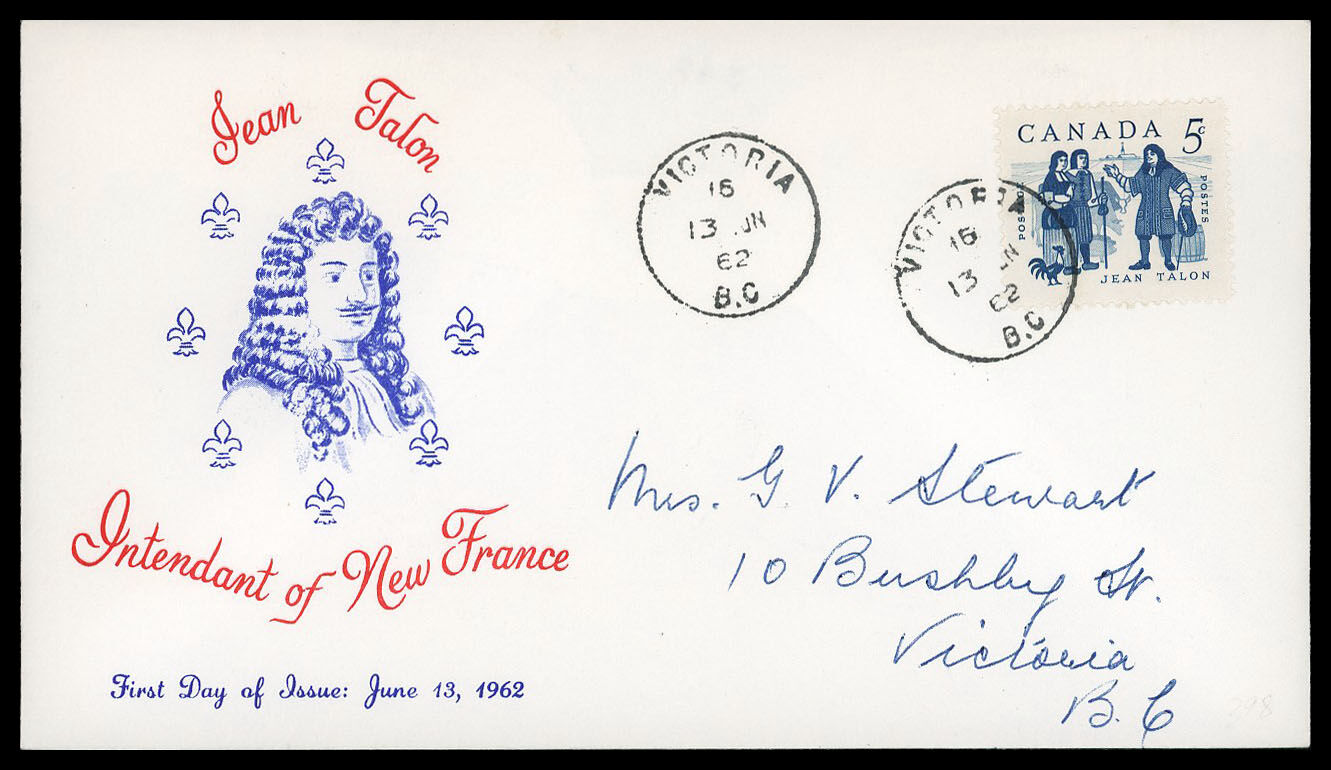 Jean Talon
Intendant of New France
First Day of Issue: June 13, 1962
VICTORIA
16
13 JN
62
B.C
CANADA 5c
POSTAGE
POSTES
JEAN TALON
VICTORIA
16
13 JN
62
B.C
Mrs. G. V. Stewart
10 Bushby St.
Victoria
B.C
298